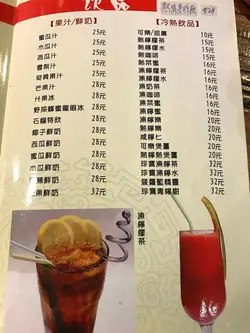 飲品
$28
【果汁/鮮奶】
蜜瓜汁 25元
木瓜汁 25元
西瓜汁 25元
雪梨汁 25元
奇異果汁 25元
芒果汁 25元
什果冰 28元
野採蜂蜜龍眼冰 28元
石榴特飲 28元
椰子鮮奶 28元
西瓜鮮奶 28元
蜜瓜鮮奶 28元
木瓜鮮奶 28元
鮮奶 28元
芒果鮮奶 32元
【冷熱飲品】
可樂/忌廉 10元
熱檸檬茶 15元
熱檸檬水 15元
熱咖啡 15元
熱菜蜜 16元
凍檸檬茶 16元
凍檸檬水 16元
凍咖啡 16元
凍菜蜜 16元
凍檸蜜 16元
凍檸樂 20元
熱檸樂 20元
咸檸七 20元
可樂煲薑 20元
熱檸樂煲薑 20元
珍寶凍檸茶 32元
珍寶凍檸水 32元
珍寶青檸梳打 32元
凍檸檬茶